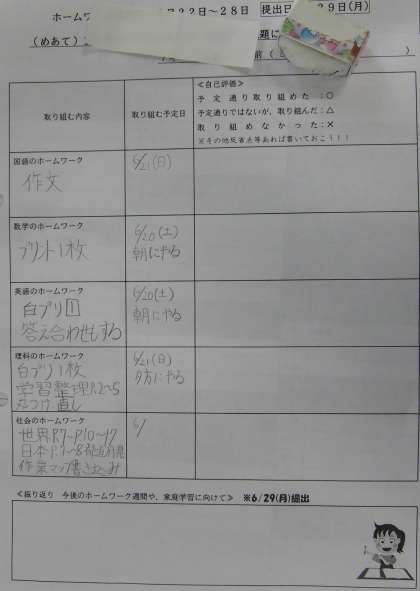 ホーム
22日～28日
提出日
29日(月)
(めあて)
題に
前(
取り組む内容
取り組む予定日
≪自己評価≫
予定通り取り組めた:○
予定通りではないが、取り組んだ:△
取り組めなかった:×
※その他反省点等あれば書いておこう!!
国語のホームワーク
作文
6/21(日)
数学のホームワーク
プリント1枚
6/20(土)
朝にやる
英語のホームワーク
白プリ①
答え合わせもする
6/20(土)
朝にやる
理科のホームワーク
白プリ1枚
学習整理P.2～5
丸つけ.直し
6/21(日)
夕方にやる
社会のホームワーク
世界P.7～P.10～17
日本P.7～8都道府県
作業マップ書き込み
6/
≪振り返り 今後のホームワーク週間や、家庭学習に向けて≫ ※6/29(月)提出